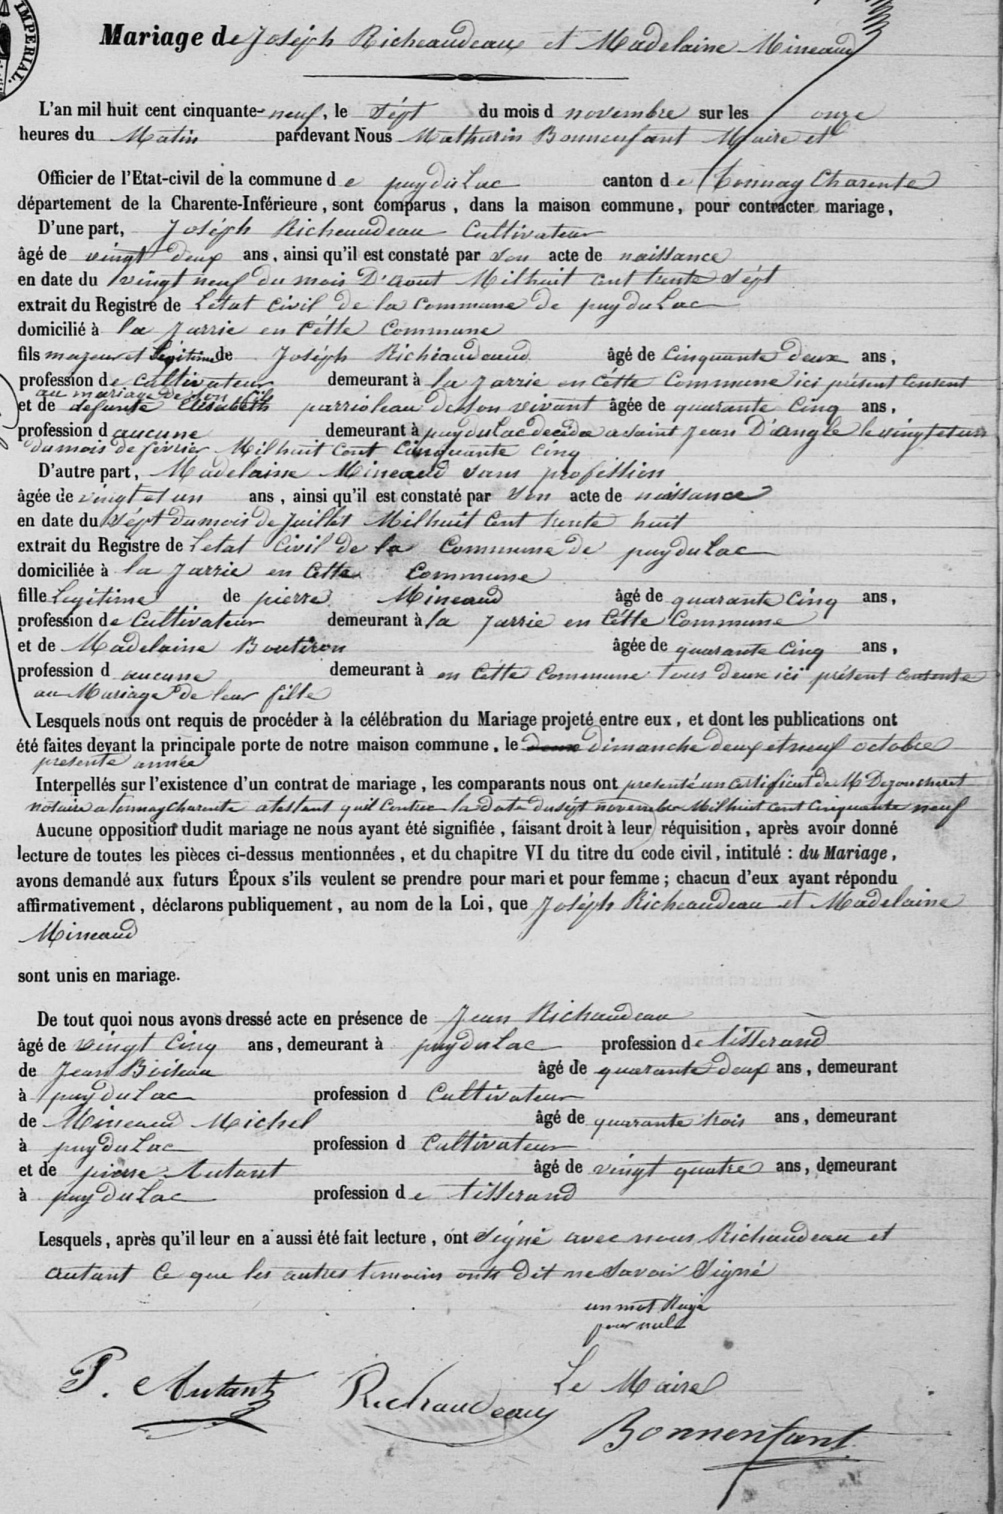 IMPERIAL.
Mariage de Joséph Richeaudeau et Madelaine Mineaud
L'an mil huit cent cinquante-neuf, le sépt du mois d novembre sur les onze
heures du Matin pardevant Nous Mathurin Bonnenfant Maire et
Officier de l'Etat-civil de la commune de puyduLac canton de Tonnay Charente
département de la Charente-Inférieure, sont comparus, dans la maison commune, pour contracter mariage,
D'une part, Joséph Richeaudeau Cultivateur
âgé de vingt deux ans, ainsi qu'il est constaté par son acte de naissance
en date du vingt neuf du mois D'aout Milhuit cent trente sépt
extrait du Registre de Létat civil de la commune de puyduLac
domicilié à la Jarrie en cétte Commune
fils majeur et légitime de Joséph Richiaudeaud âgé de Cinquante deux ans,
profession de Cultivateur demeurant à la Jarrie en cétte Commune ici présent Consent
au mariage de son fils
et de défunte Elisabeth parrioleau de son vivant âgée de quarante Cinq ans,
profession d aucune demeurant à puyduLac décédée a saint Jean D'angle le vingt et un
du mois de février Milhuit Cent Cinquante cinq
D'autre part, Madelaine Mineaud sans proféssion
âgée de vingt et un ans, ainsi qu'il est constaté par son acte de naissance
en date du sépt du mois de Juillet Milhuit Cent trente huit
extrait du Registre de Létat Civil de la Commune de puyduLac
domiciliée à la Jarrie en Cétte Commune
fille Légitime de pierre Mineaud âgé de quarante Cinq ans,
profession de Cultivateur demeurant à la Jarrie en Cétte Commune
et de Madelaine Boutiron âgée de quarante Cinq ans,
profession d aucune demeurant à en Cétte Commune tous deux ici présent consente
au Mariage de leur fille
Lesquels nous ont requis de procéder à la célébration du Mariage projeté entre eux, et dont les publications ont
été faites devant la principale porte de notre maison commune, le dimanche deux et neuf octobre
présente année
Interpellés sur l'existence d'un contrat de mariage, les comparants nous ont présenté un certificat de Me
notaire a tonnaycharente atestant qu'il Contrac la date du sépt novembre Milhuit cent Cinquante neuf
Aucune opposition dudit mariage ne nous ayant été signifiée, faisant droit à leur réquisition, après avoir donné
lecture de toutes les pièces ci-dessus mentionnées, et du chapitre VI du titre du code civil, intitulé : du Mariage,
avons demandé aux futurs Époux s'ils veulent se prendre pour mari et pour femme; chacun d'eux ayant répondu
affirmativement, déclarons publiquement, au nom de la Loi, que Joséph Richeaudeau et Madelaine
Mineaud
sont unis en mariage.
De tout quoi nous avons dressé acte en présence de Jean Richaudeau
âgé de vingt Cinq ans, demeurant à puyduLac profession de tisserand
de Jean Boiteau âgé de quarante deux ans, demeurant
à puyduLac profession d Cultivateur
de Mineaud Michel âgé de quarante trois ans, demeurant
à puyduLac profession d Cultivateur
et de pierre Autant âgé de vingt quatre ans, demeurant
à puyduLac profession de tisserand
Lesquels, après qu'il leur en a aussi été fait lecture, ont signé avec nous Richaudeau et
autant Ce que les autres temoins onts dit ne savoir Signé
un mot Rayé
pour nul
Le Maire
P. Autant
Richaudeau
Bonnenfant